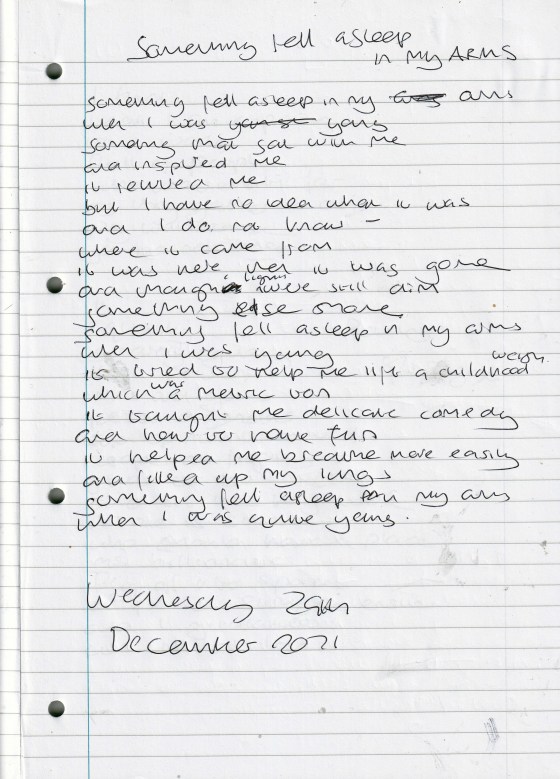 Something fell asleep
in my ARMS
something fell asleep in my arms
when I was young
something that sat with me
and inspired me
it revived me
but I have no idea what it was
and I do not know -
where it came from
it was here then it was gone
and though lights were still dim
something else shone
something fell asleep in my arms
when I was young
it tried to help me lift a childhood
which was a metric ton
it taught me delicate comedy
and how to have fun
it helped me breathe more easily
and filled up my lungs
something fell asleep in my arms
when I was quite young.
Wednesday 29th
December 2021